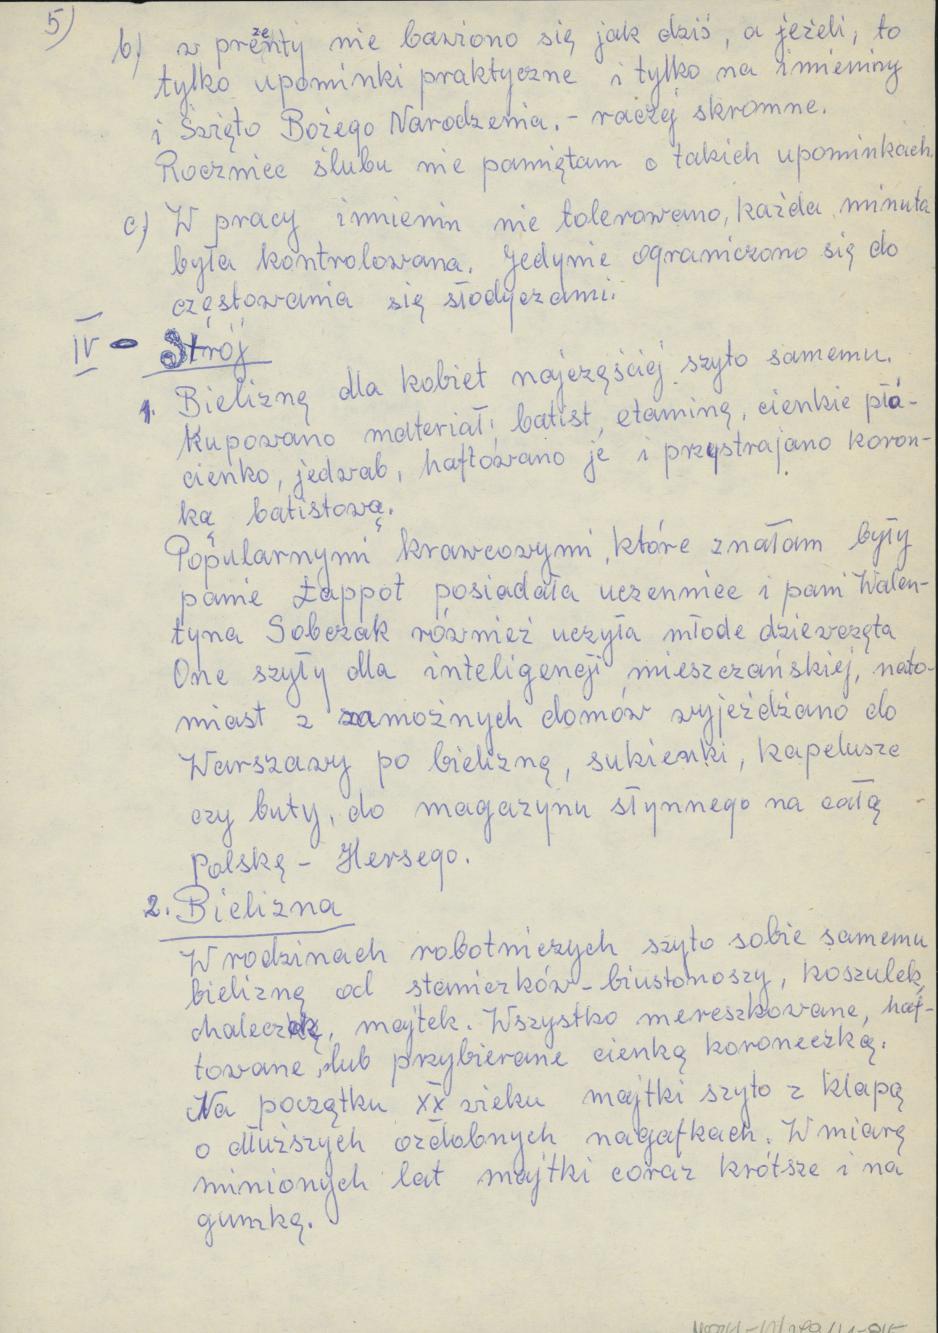 5)
b) w prezenty nie bawiono się jak dziś, a jeżeli, to
tylko upominki praktyczne i tylko na imieniny
i Święto Bożego Narodzenia. - raczej skromne.
Rocznice ślubu nie pamiętam o takich upominkach.
c) W pracy imienin nie tolerowano, każda minuta
była kontrolowana. Jedynie ograniczono się do
częstowania się słodyczami.
IV - Strój
1. Bieliznę dla kobiet najczęściej szyto samemu.
Kupowano materiał, batist, etaminę, cienkie płó-
cienko, jedwab, haftowano je i przystrajano koron-
ką batistową.
Popularnymi krawcowymi, które znałam były
panie Łappot posiadała uczennice i pani Walen-
tyna Sobczak również uczyła młode dziewczęta
One szyły dla inteligencji mieszczańskiej, nato-
miast z zamożnych domów wyjeżdżano do
Warszawy po bieliznę, sukienki, kapelusze
czy buty, do magazynu słynnego na całą
Polskę - Hersego.
2. Bielizna
W rodzinach robotniczych szyto sobie samemu
bieliznę od staniczków - biustonoszy, koszulek,
chaleczkę, majtek. Wszystko mereszkowane, haf-
towane, lub przybierane cienką koroneczką.
Na początku XX wieku majtki szyto z klapą
o dłuższych ozdobnych nogafkach. W miarę
minionych lat majtki coraz krótsze i na
gumkę.